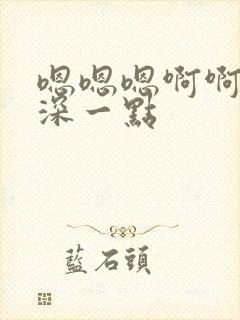 嗯嗯嗯啊啊
深一點
藍石頭